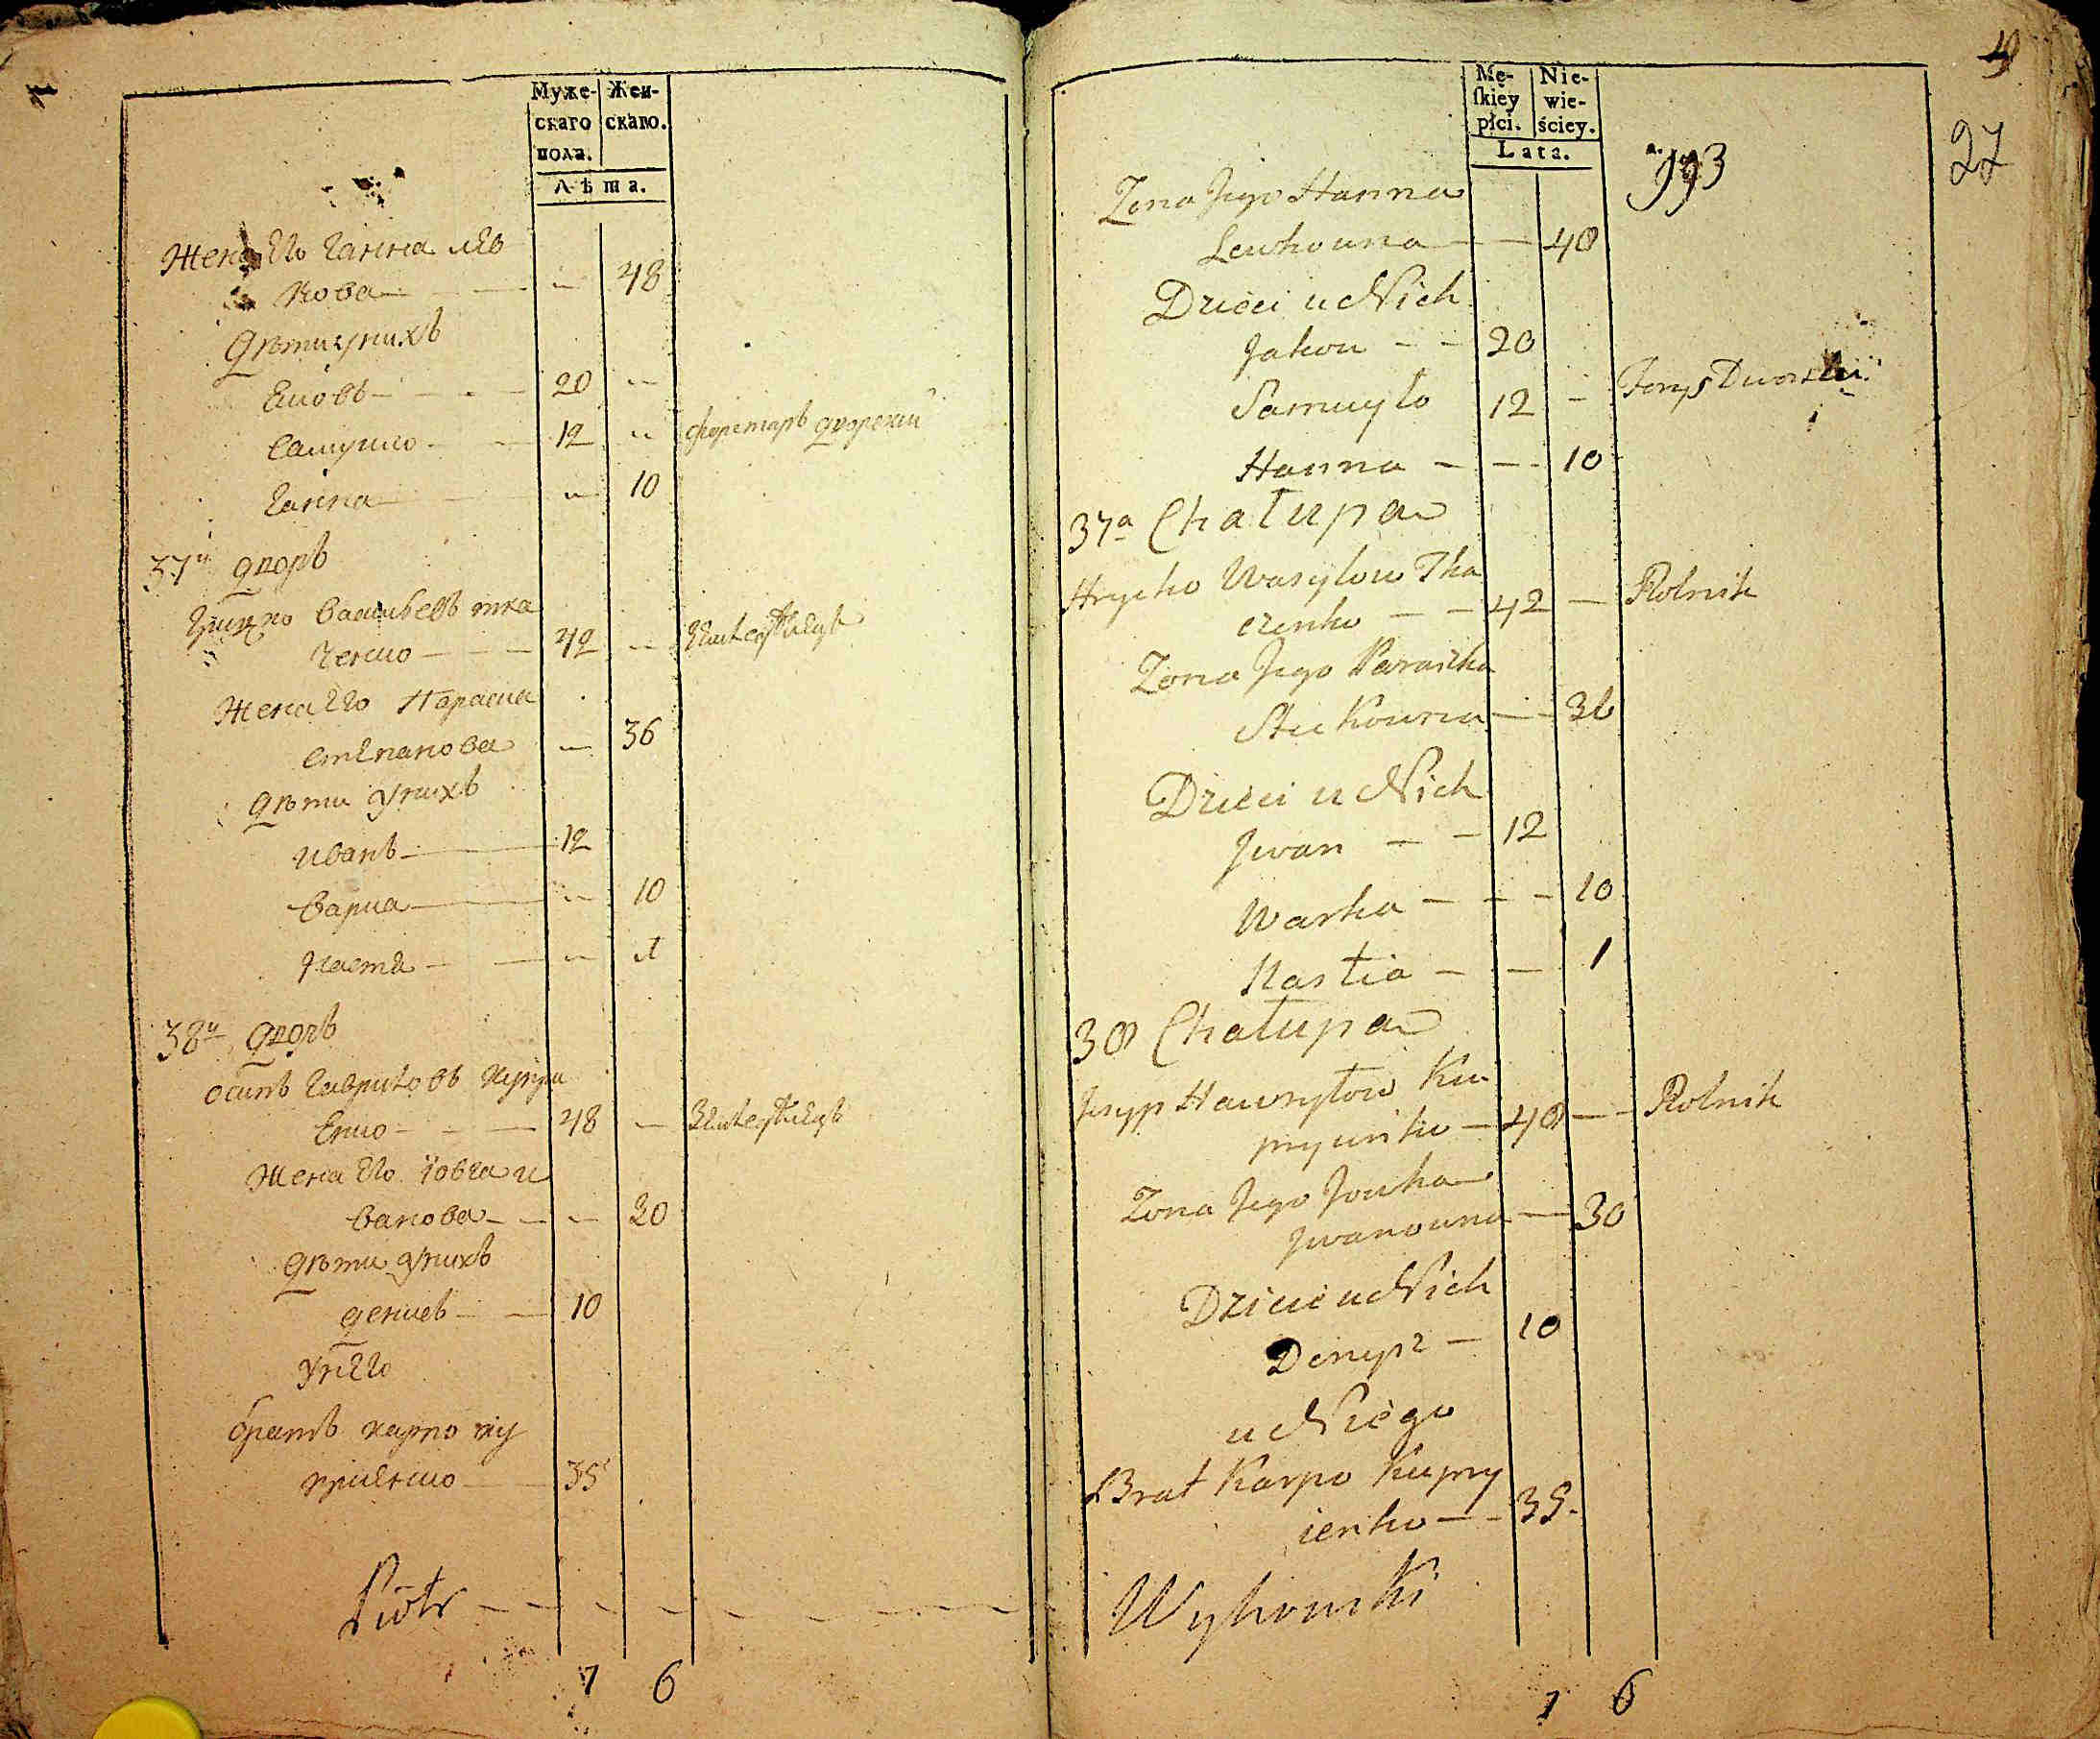 Муже-
скаго
пола.
Жен-
скаго.
Лѣта.
Жена Его Ганна Лев
кова — — — 48
Дѣти у нихъ
Яковъ — — — 20 —
Самуило — — 12 — форетаръ дворский
Ганна — — — 10
37й дворъ
Грицко Васильевъ тка
ченко — — 42 —
Жена Его Параска
Степанова — 36
Дѣти у нихъ
Иванъ — 12
Варка — — 10
Настя — — — 1
38й дворъ
Осипъ Гавриловъ Купри
Енко — — — 48 —
Жена Его Iовга и
ванова — — — 30
Дѣти у нихъ
Денисъ — — 10
У него
братъ Карпо Ку
приенко — 35
Piotr — — — — — — — —
7 6
Mę-
skiey
płci.
Nie-
wie-
ściey.
Lata.
993
27
Zona Jego Hanna
Lewkowna — — 48
Dzieci u Nich
Jakow — — 20
Samuyło 12 — Forys Dworski
Hanna — — - 10
37a Chałupa
Hryćko Wasylow Tka
czenko — — 42 — Rolnik
Zona Jego Paraszka
Stekowna — - 36
Dzieci u Nich
Jwan — — 12
Warka — - — 10
Nastia — — 1
38 Chałupa
Josyp Hawryłow Ku
pryienko — 48 — - Rolnik
Zona Jego Jowha
Jwanowna — 30
Dzieci u Nich
Denys — 10
u Niego
Brat Karpo Kupry
ienko — - 35.
Wyhowski
7 6